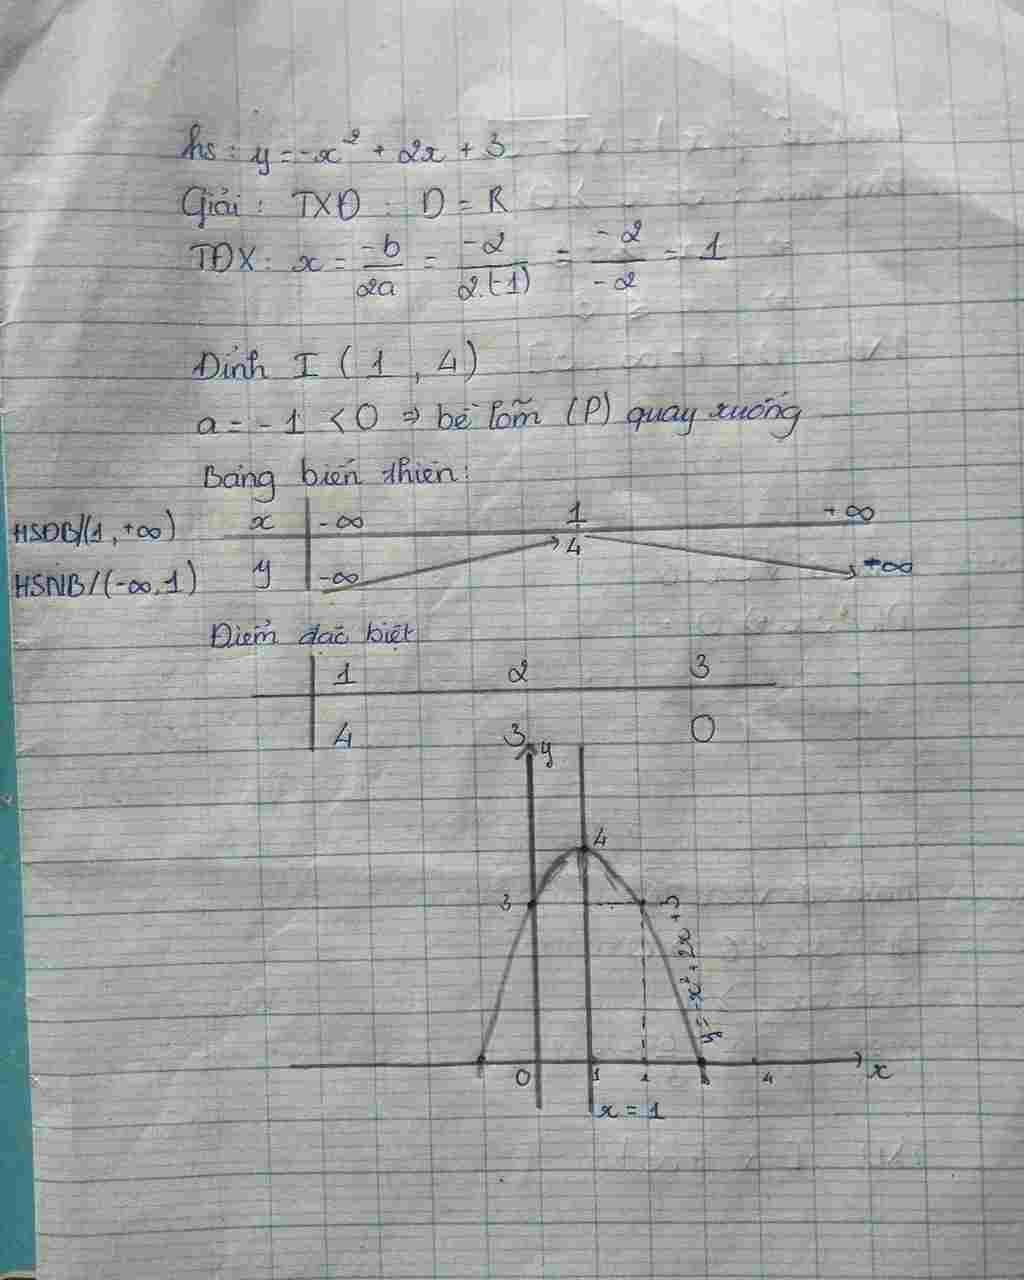 hs: y = -x² + 2x + 3
Giải: TXĐ: D = R
TĐX: x = -b/2a = -2/2.(-1) = -2/-2 = 1
Đỉnh I (1, 4)
a = -1 < 0 => bề lõm (P) quay xuống
Bảng biến thiên:
HSĐB/(1, +∞) x -∞ 1 +∞
HSNB/(-∞, 1) y -∞ 4 +∞
Điểm đặc biệt
1 2 3
4 3 0
y
4
3 3
y = -x² + 2x + 3
0 1 3 4 x
x = 1